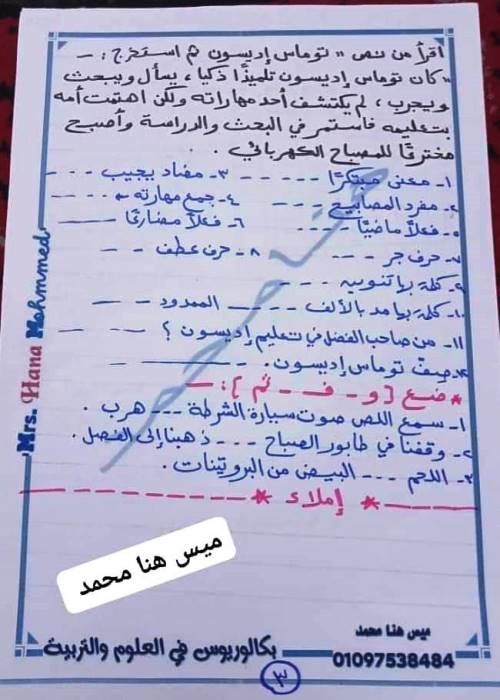 اقرأ من نص " توماس إديسون " ثم استخرج : -
" كان توماس إديسون تلميذًا ذكيا ، يسأل ويبحث
ويجرب ، لم يكتشف أحد مهاراته ولكن اهتمت أمه
بتعليمه فاستمر في البحث والدراسة وأصبح
مخترعًا للمصباح الكهربائي . .
١- معنى مبتكرًا - - - - - ٣- مضاد يجيب - - -
٢- مفرد المصابيح - - - ٤- جمع مهارته - - -
٥- فعلاً ماضيًا - - - ٦- فعلاً مضارعًا ———
٧- حرف جر - - - ٨- حرف عطف - - -
٩- كلمة بها تنوين - - -
١٠- كلمة بها مد بالألف - - - الممدود - - -
١١- من صاحب الفضل في تعليم إديسون ؟ - - -
١٢- صف توماس إديسون . ———
* ضع [ و - ف - ثم ] : -
١- سمع اللص صوت سيارة الشرطة - - - هرب .
٢- وقفنا في طابور الصباح - - - ذهبنا إلى الفصل .
٣- اللحم - - - البيض من البروتينات .
* إملاء *
Mrs. Hana Mahmmed
ميس هنا محمد
ميس هنا محمد
بكالوريوس في العلوم والتربية
01097538484
٣